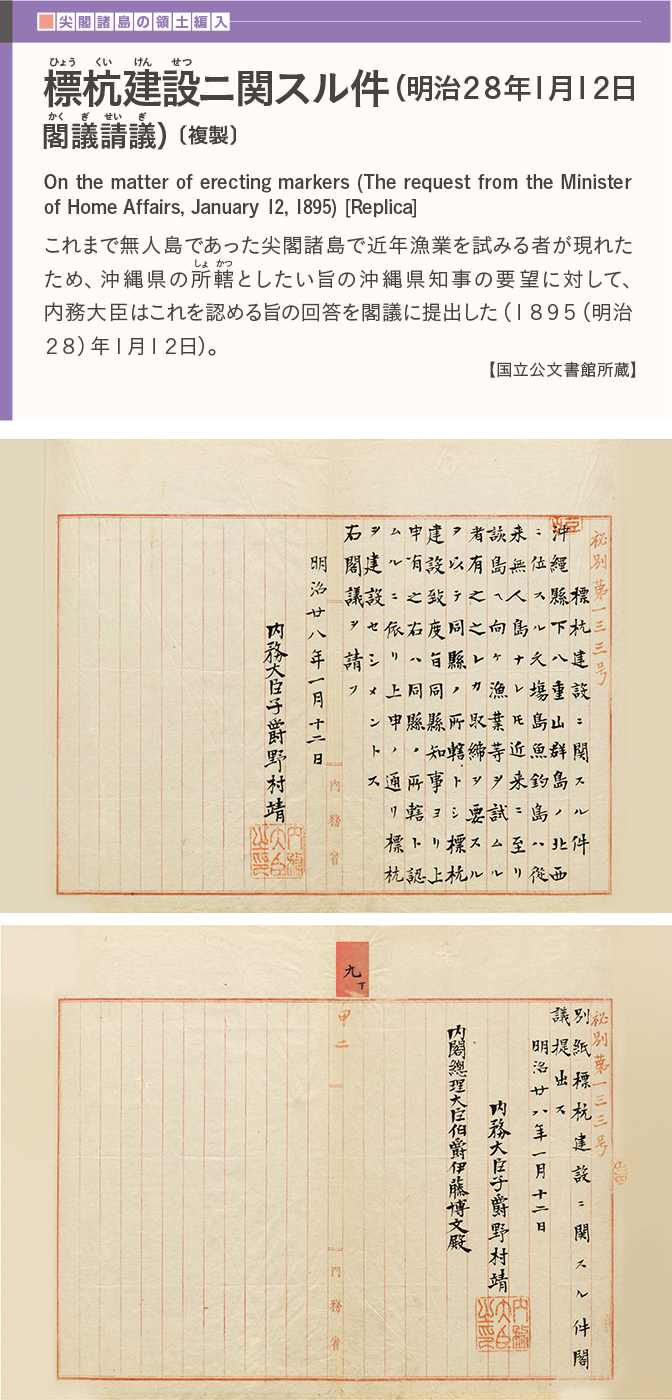 尖閣諸島の領土編入
標杭建設ニ関スル件（明治２８年１月１２日
閣議請議）〔複製〕
On the matter of erecting markers (The request from the Minister
of Home Affairs, January 12, 1895) [Replica]
これまで無人島であった尖閣諸島で近年漁業を試みる者が現れた
ため、沖縄県の所轄としたい旨の沖縄県知事の要望に対して、
内務大臣はこれを認める旨の回答を閣議に提出した（１８９５（明治
２８）年１月１２日）。
【国立公文書館所蔵】
秘別第一三三号
標杭建設ニ関スル件
沖縄縣下八重山群島ノ北西
ニ位スル久場島魚釣島ハ従
来無人島ナレトモ近来ニ至リ
該島ヘ向ケ漁業等ヲ試ムル
者有之之レカ取締ヲ要スル
ヲ以テ同縣ノ所轄トシ標杭
建設致度旨同縣知事ヨリ上
申有之右ハ同縣ノ所轄ト認
ムルニ依リ上申ノ通リ標杭
ヲ建設セシメントス
右閣議ヲ請フ
明治廿八年一月十二日
内務大臣子爵野村靖
内務大臣之印
内務省
九下
秘別第一三三号
別紙標杭建設ニ関スル件閣
議提出ス
明治廿八年一月十二日
内務大臣子爵野村靖
内務大臣之印
内閣總理大臣伯爵伊藤博文殿
甲二
内務省